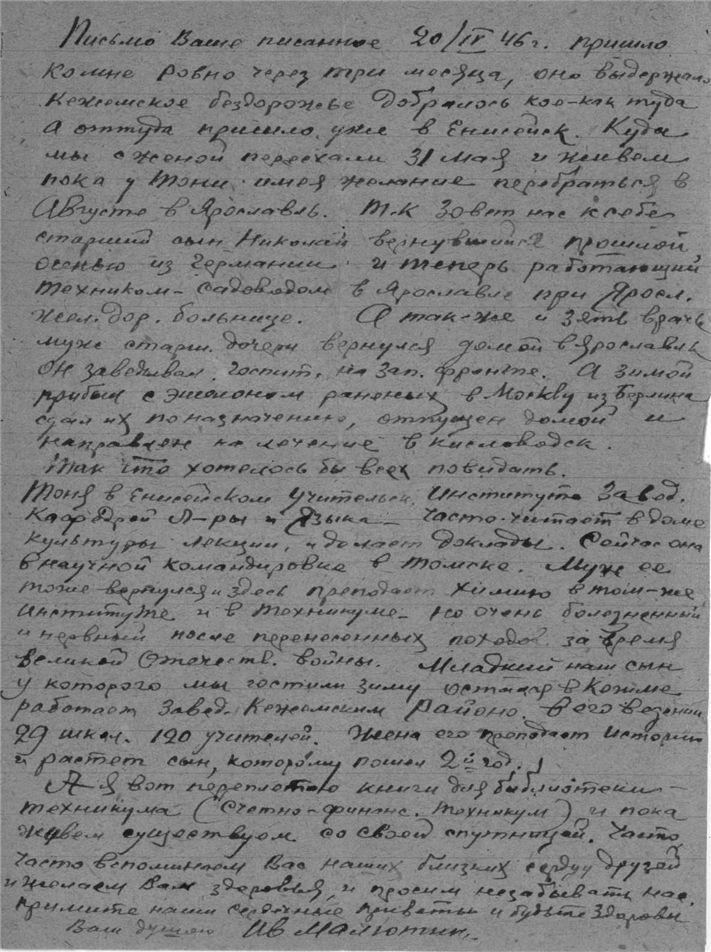 Письмо Ваше писанное 20/IV 46 г. пришло
комне ровно через три месяца, оно выдержало
Кежемское бездорожье добралось кое-как туда
а оттуда пришло уже в Енисейск. Куда
мы с женой переехали 31 мая и живем
пока у Тони. имея желание перебраться в
Августе в Ярославль. Т.К зовет нас к себе
старший сын Николай вернувшийся прошлой
осенью из Германии и теперь работающий
техником-садоводом в Ярославле при Яросл.
жел. дор. больнице. А так-же и зять врач
муж старш. дочери вернулся домой в Ярославль
он заведывал госпит. на Зап. фронте. А зимой
прибыл с эшелоном раненых в Москву из Берлина
сдал их по назначению, отпущен домой и
направлен на лечение в Кисловодск.
Так что хотелось бы всех повидать.
Тоня в Енисейском Учительск. Институте Завед.
Кафедрой Л-ры и Языка - часто читает в доме
культуры лекции, и делает доклады. Сейчас она
в научной командировке в Томске. Муж ее
тоже вернулся и здесь преподает химию в том-же
институте и в техникуме - но очень болезненный
и нервный после перенесенных походов за время
великой Отечеств. войны. Младший наш сын
у которого мы гостили зиму остался в Кежме
работает Завед. Кежемским Районо. в его ведении
29 школ. 120 учителей. Жена его преподает историю
и растет сын, которому пошел 2й год.
А я вот переплетаю книги для библиотеки -
техникума (Счетно-финанс. техникум) и пока
живем существуем со своей спутницей. Часто,
часто вспоминаем Вас наших близких сердцу друзей
и желаем Вам здоровья, и просим незабывать нас.
примите наши сердечные приветы и будьте здоровы
Ваш душою Ив Малютин.